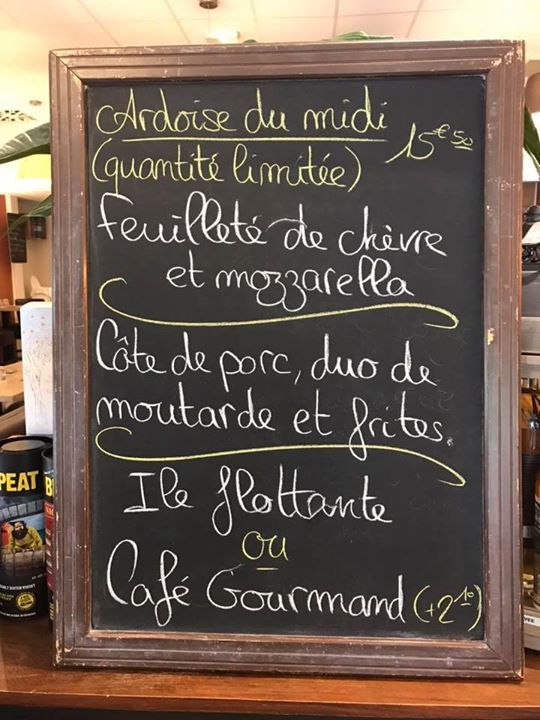 Ardoise du midi
(quantité limitée) 15€50
Feuilleté de chèvre
et mozzarella
Côte de porc, duo de
moutarde et frites.
Ile flottante
ou
Café Gourmand (+2€10)
PEAT